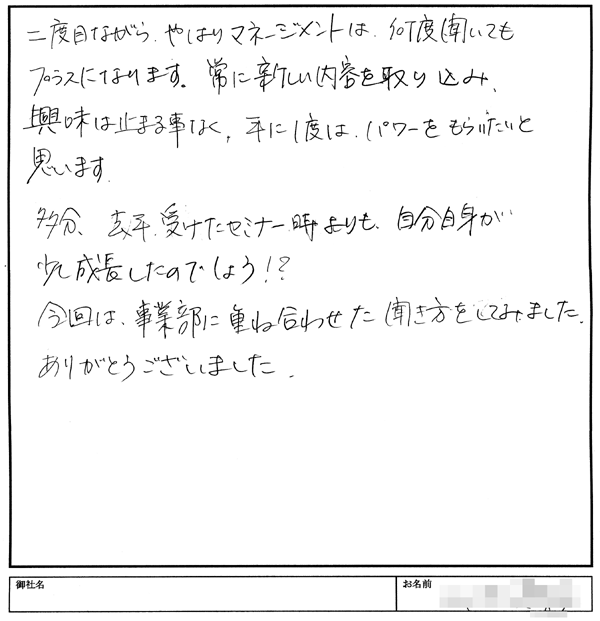 二度目ながら、やはりマネージメントは、何度聞いても
プラスになります。常に新しい内容を取り込み、
興味は止まる事なく、年に1度は、パワーをもらいたいと
思います。
多分、去年、受けたセミナー時よりも、自分自身が
少し成長したのでしょう!?
今回は、事業部に重ね合わせた聞き方をしてみました。
ありがとうございました。
御社名
お名前